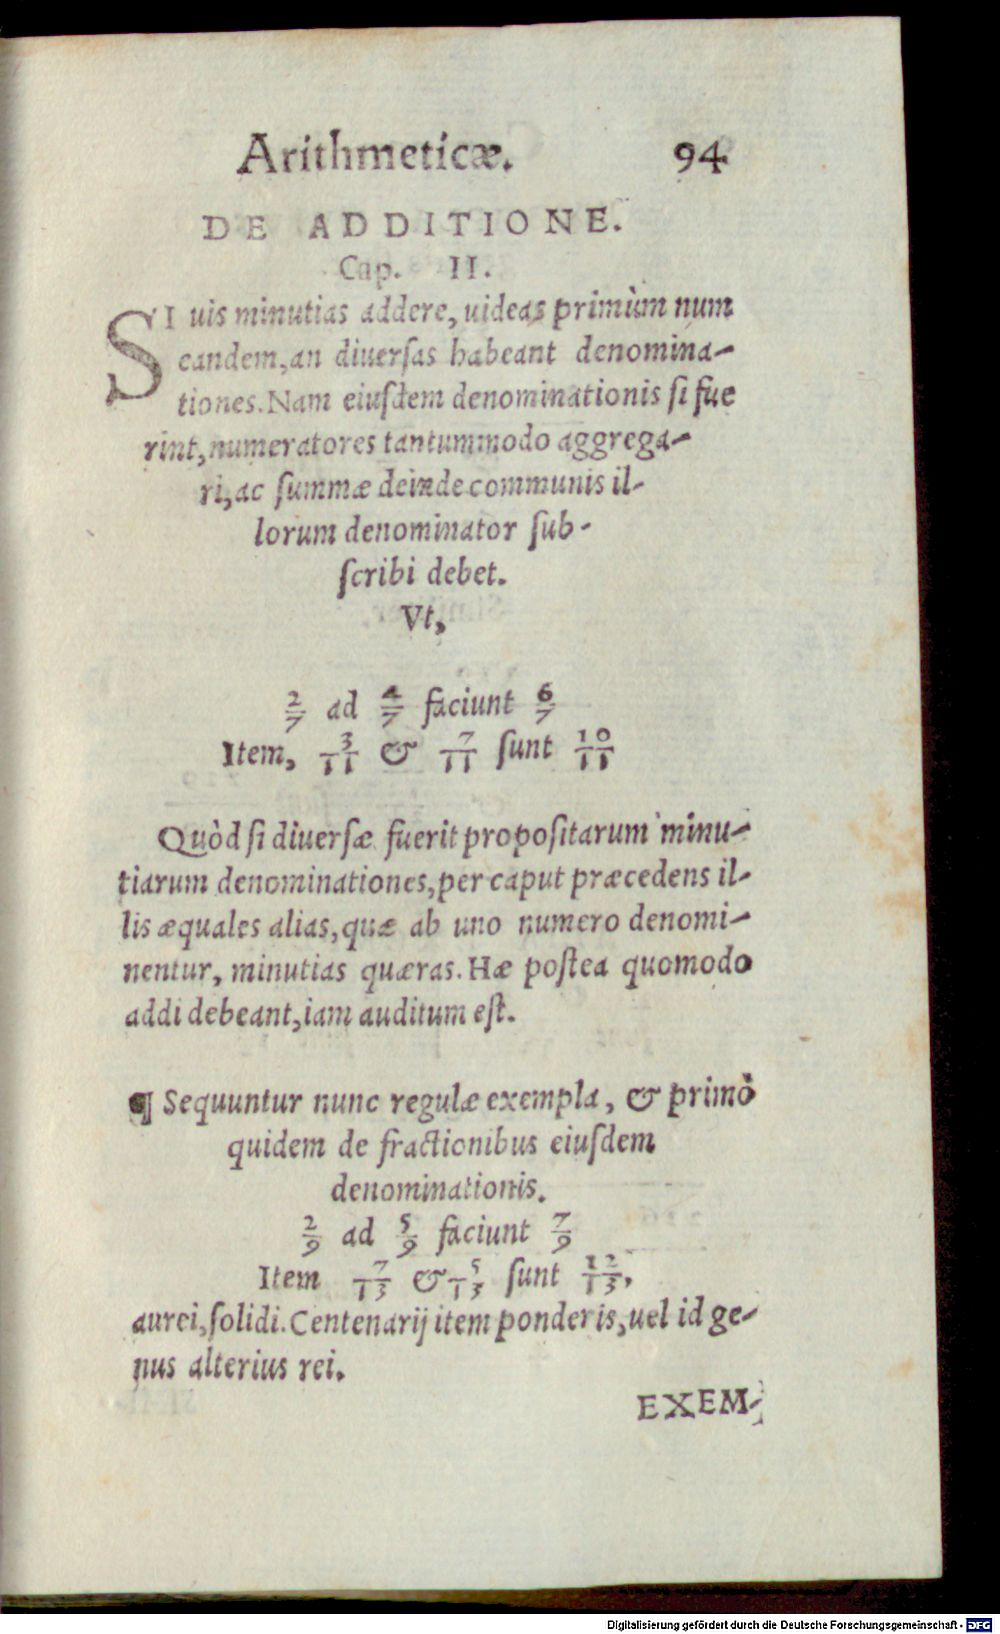 Arithmeticæ. 94
DE ADDITIONE.
Cap. II.
SI uis minutias addere, uideas primùm num
eandem, an diuersas habeant denomina-
tiones. Nam eiusdem denominationis si fue
rint, numeratores tantummodo aggrega-
ri, ac summæ deinde communis il-
lorum denominator sub-
scribi debet.
Vt,
2/7 ad 4/7 faciunt 6/7
Item, 3/11 & 7/11 sunt 10/11
Quòd si diuersæ fuerit propositarum minu-
tiarum denominationes, per caput præcedens il-
lis æquales alias, quæ ab uno numero denomi-
nentur, minutias quæras. Hæ postea quomodo
addi debeant, iam auditum est.
¶ Sequuntur nunc regulæ exempla, & primò
quidem de fractionibus eiusdem
denominationis.
2/9 ad 5/9 faciunt 7/9
Item 7/13 & 5/13 sunt 12/13,
aurei, solidi. Centenarij item ponderis, uel id ge-
nus alterius rei.
EXEM-
Digitalisierung gefördert durch die Deutsche Forschungsgemeinschaft - DFG